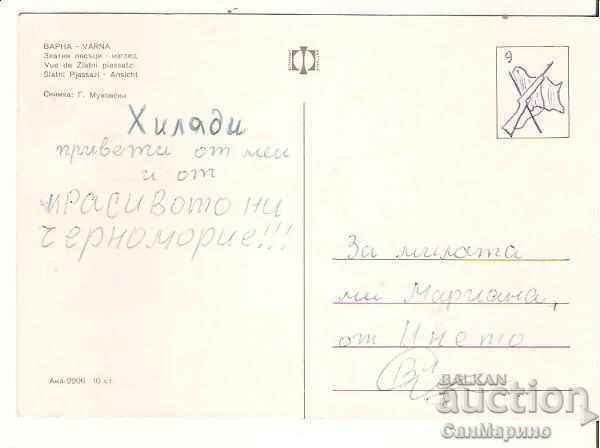 ВАРНА - VARNA
Златни пясъци - изглед
Vue de Zlatni piassatzi
Slatni Pjassazi - Ansicht
Снимка: Г. Муховски
Хилади
привети от мен
и от
красивото ни
черноморие!!!
9
За милата
ми Мариана,
от Инето
Акл-2206 10 ст.
BALKAN
auction
СанМарино